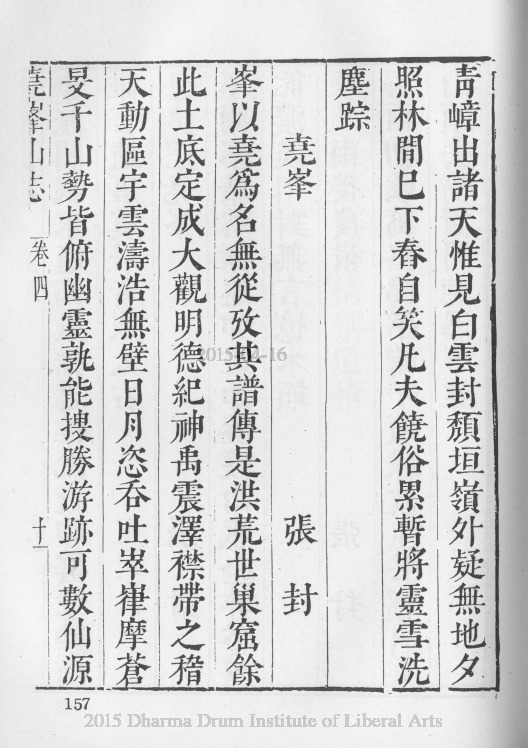 青嶂出諸天惟見白雲封頹垣嶺外疑無地夕
照林間已下舂自笑凡夫饒俗累暫將靈雪洗
塵踪
堯峯 張封
峯以堯爲名無從攷其譜傳是洪荒世巢窟餘
此土底定成大觀明德紀神禹震澤襟帶之稽
天動區宇雲濤浩無壁日月恣呑吐崒嵂摩蒼
旻千山勢皆俯幽靈孰能捜勝游跡可數仙源
堯峯山志 卷四 十一
2015-04-16
157
2015 Dharma Drum Institute of Liberal Arts